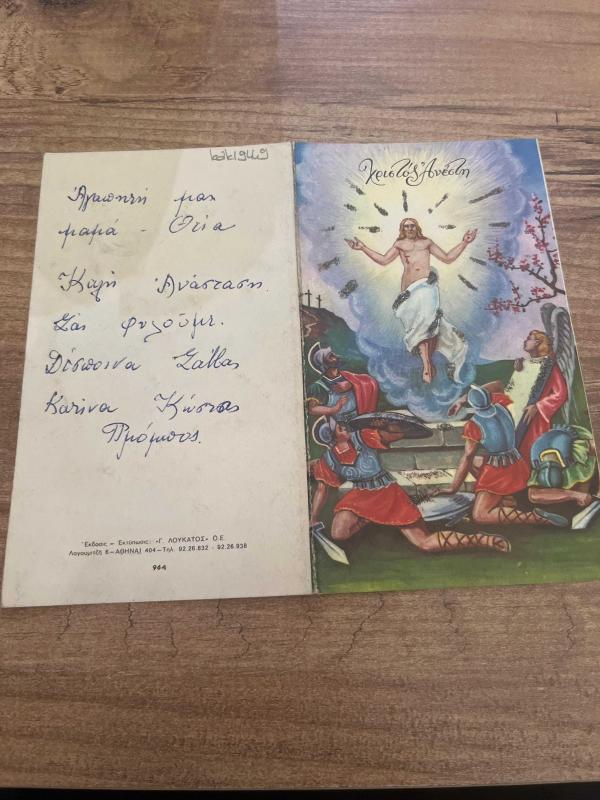 Ἀγαπητή μας
μαμά - Θεία
Καλή Ἀνάσταση.
Σᾶς φιλοῦμε.
Δέσποινα Σάββας
Κατίνα Κώστας
Ἔκδοσις – Ἐκτύπωσις: «Γ. ΛΟΥΚΑΤΟΣ» Ο.Ε.
Λαγουμιτζῆ 6 – ΑΘΗΝΑΙ 404 – Τηλ. 92.26.832 - 92.26.938
964
Χριστός Ἀνέστη